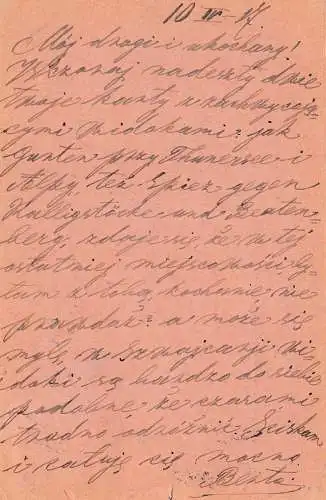 10 IV - 17
Mój drogi i ukochany!
Wczoraj nadeszły dwie
twoje karty z zachwycają-
cymi widokami: jak
Gunten przy Thunersee i
Alpy, też Spiez gegen
Ralligstöcke und Beaten-
berg, zdaje się, że w tej
ostatniej miejscowości by-
łam z tobą, kochanie, nie
prawdaż? a może się
mylę, w Szwajcarji wi-
doki są bardzo do siebie
podobne, że czasami
trudno odróżnić. Ściskam
i całuję cię mocno
Berta